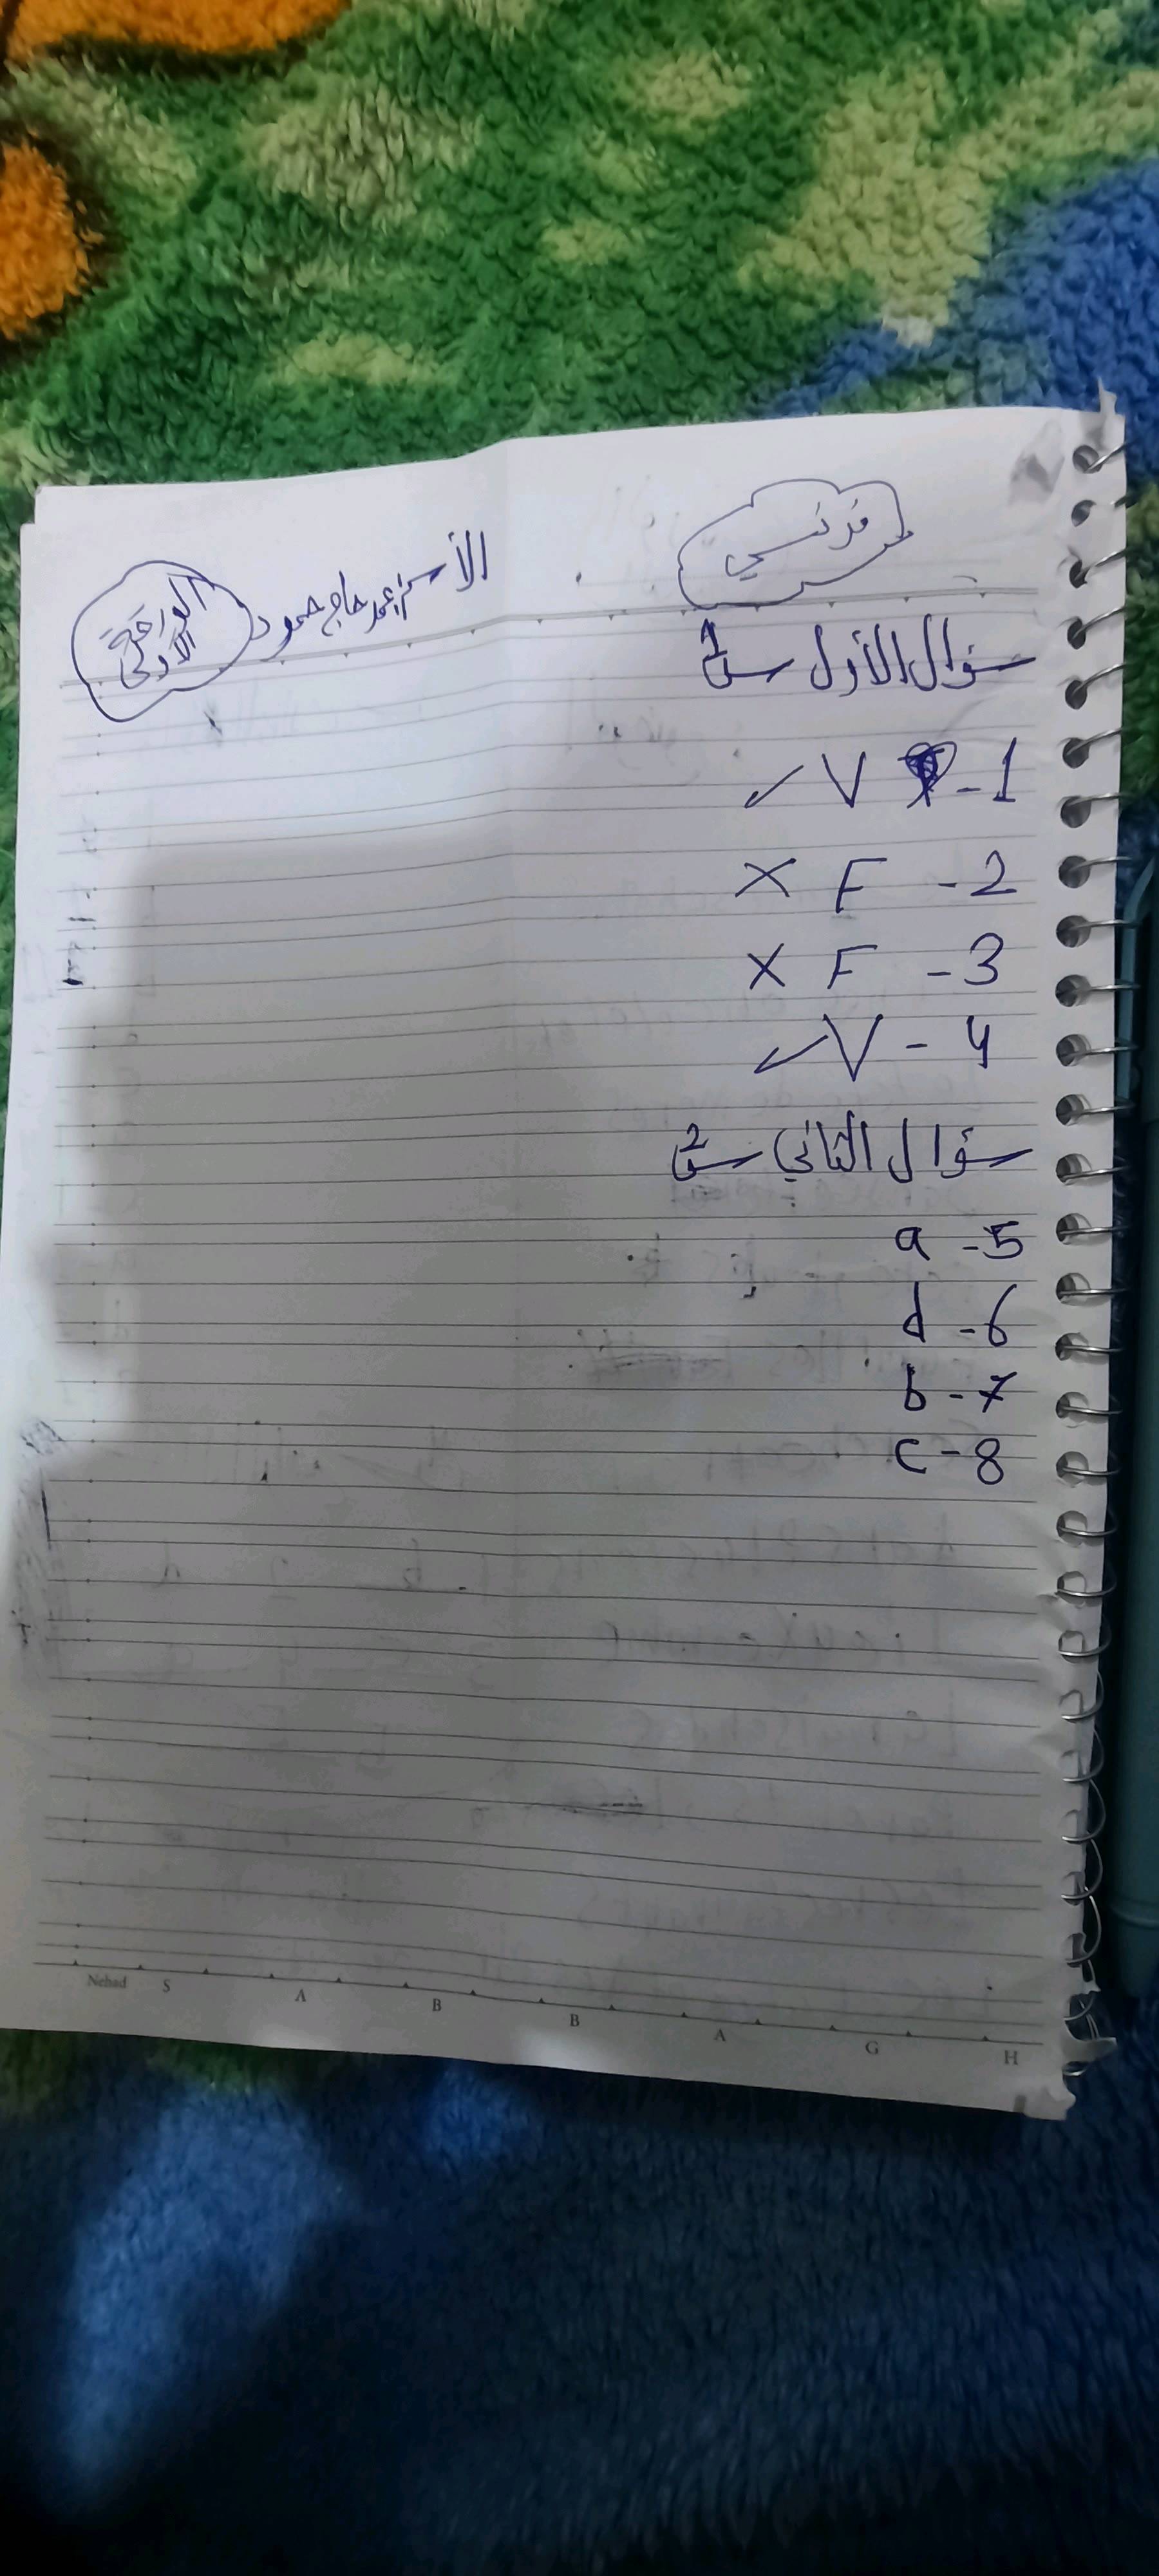 فرنسي
الأسم: عمر حاج حمود
الورقة
الأولى
سؤال الأول س1
1- V ✓
2- F X
3- F X
4- V ✓
سؤال الثاني س2
5- a
6- d
7- b
8- c
Nehad S A B B A G H